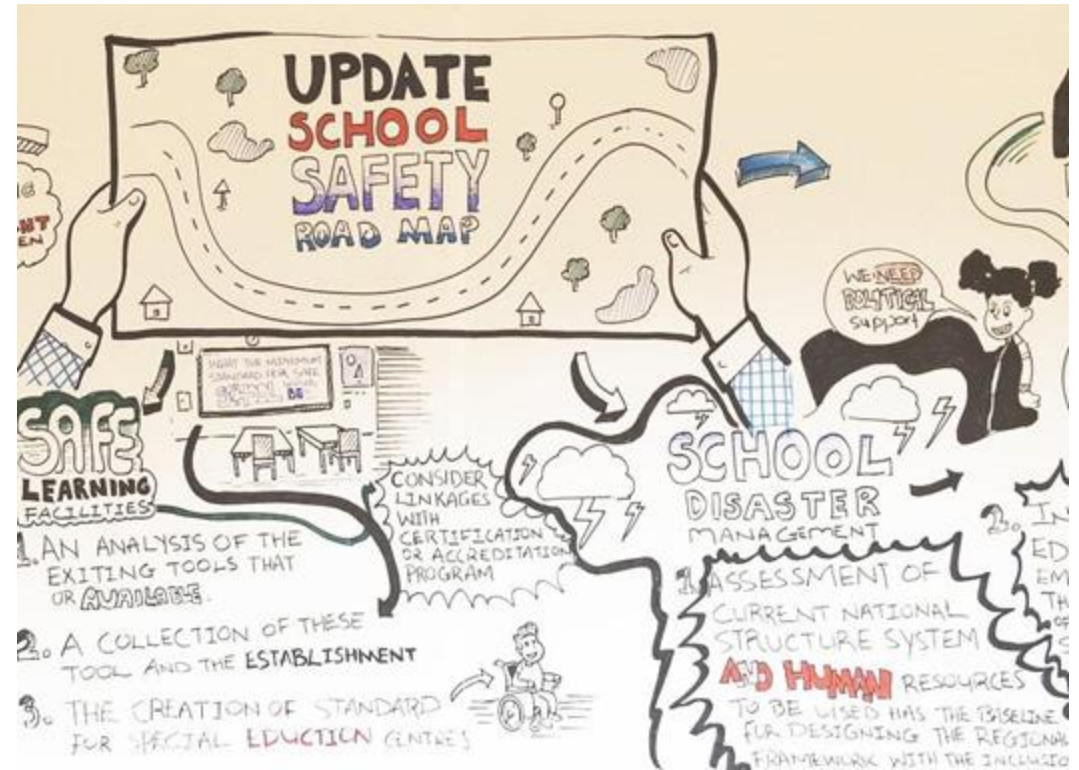 UPDATE
SCHOOL
SAFETY
ROAD MAP
NT
EN
WE NEED
POLITICAL
support
WHAT THE MINIMUM
STANDARD FOR SAFE
SCHOOL
BE
SAFE
LEARNING
FACILITIES
1. AN ANALYSIS OF THE
EXITING TOOLS THAT
OR AVAILABLE.
2. A COLLECTION OF THESE
TOOL AND THE ESTABLISHMENT
3. THE CREATION OF STANDARD
FUR SPECIAL EDUCTION CENTRES
CONSIDER
LINKAGES
WITH
CERTIFICATION
OR ACCREDITATION
PROGRAM
SCHOOL
DISASTER
MANAGEMENT
1. ASSESSMENT OF
CURRENT NATIONAL
STRUCTURE SYSTEM
AND HUMAN RESOURCES
TO BE USED HAS THE BASELINE
FUR DESIGNING THE REGIONAL
FRAMEWORK WITH THE INCLUSIO
2. IN
ED
EM
TH
OF
S